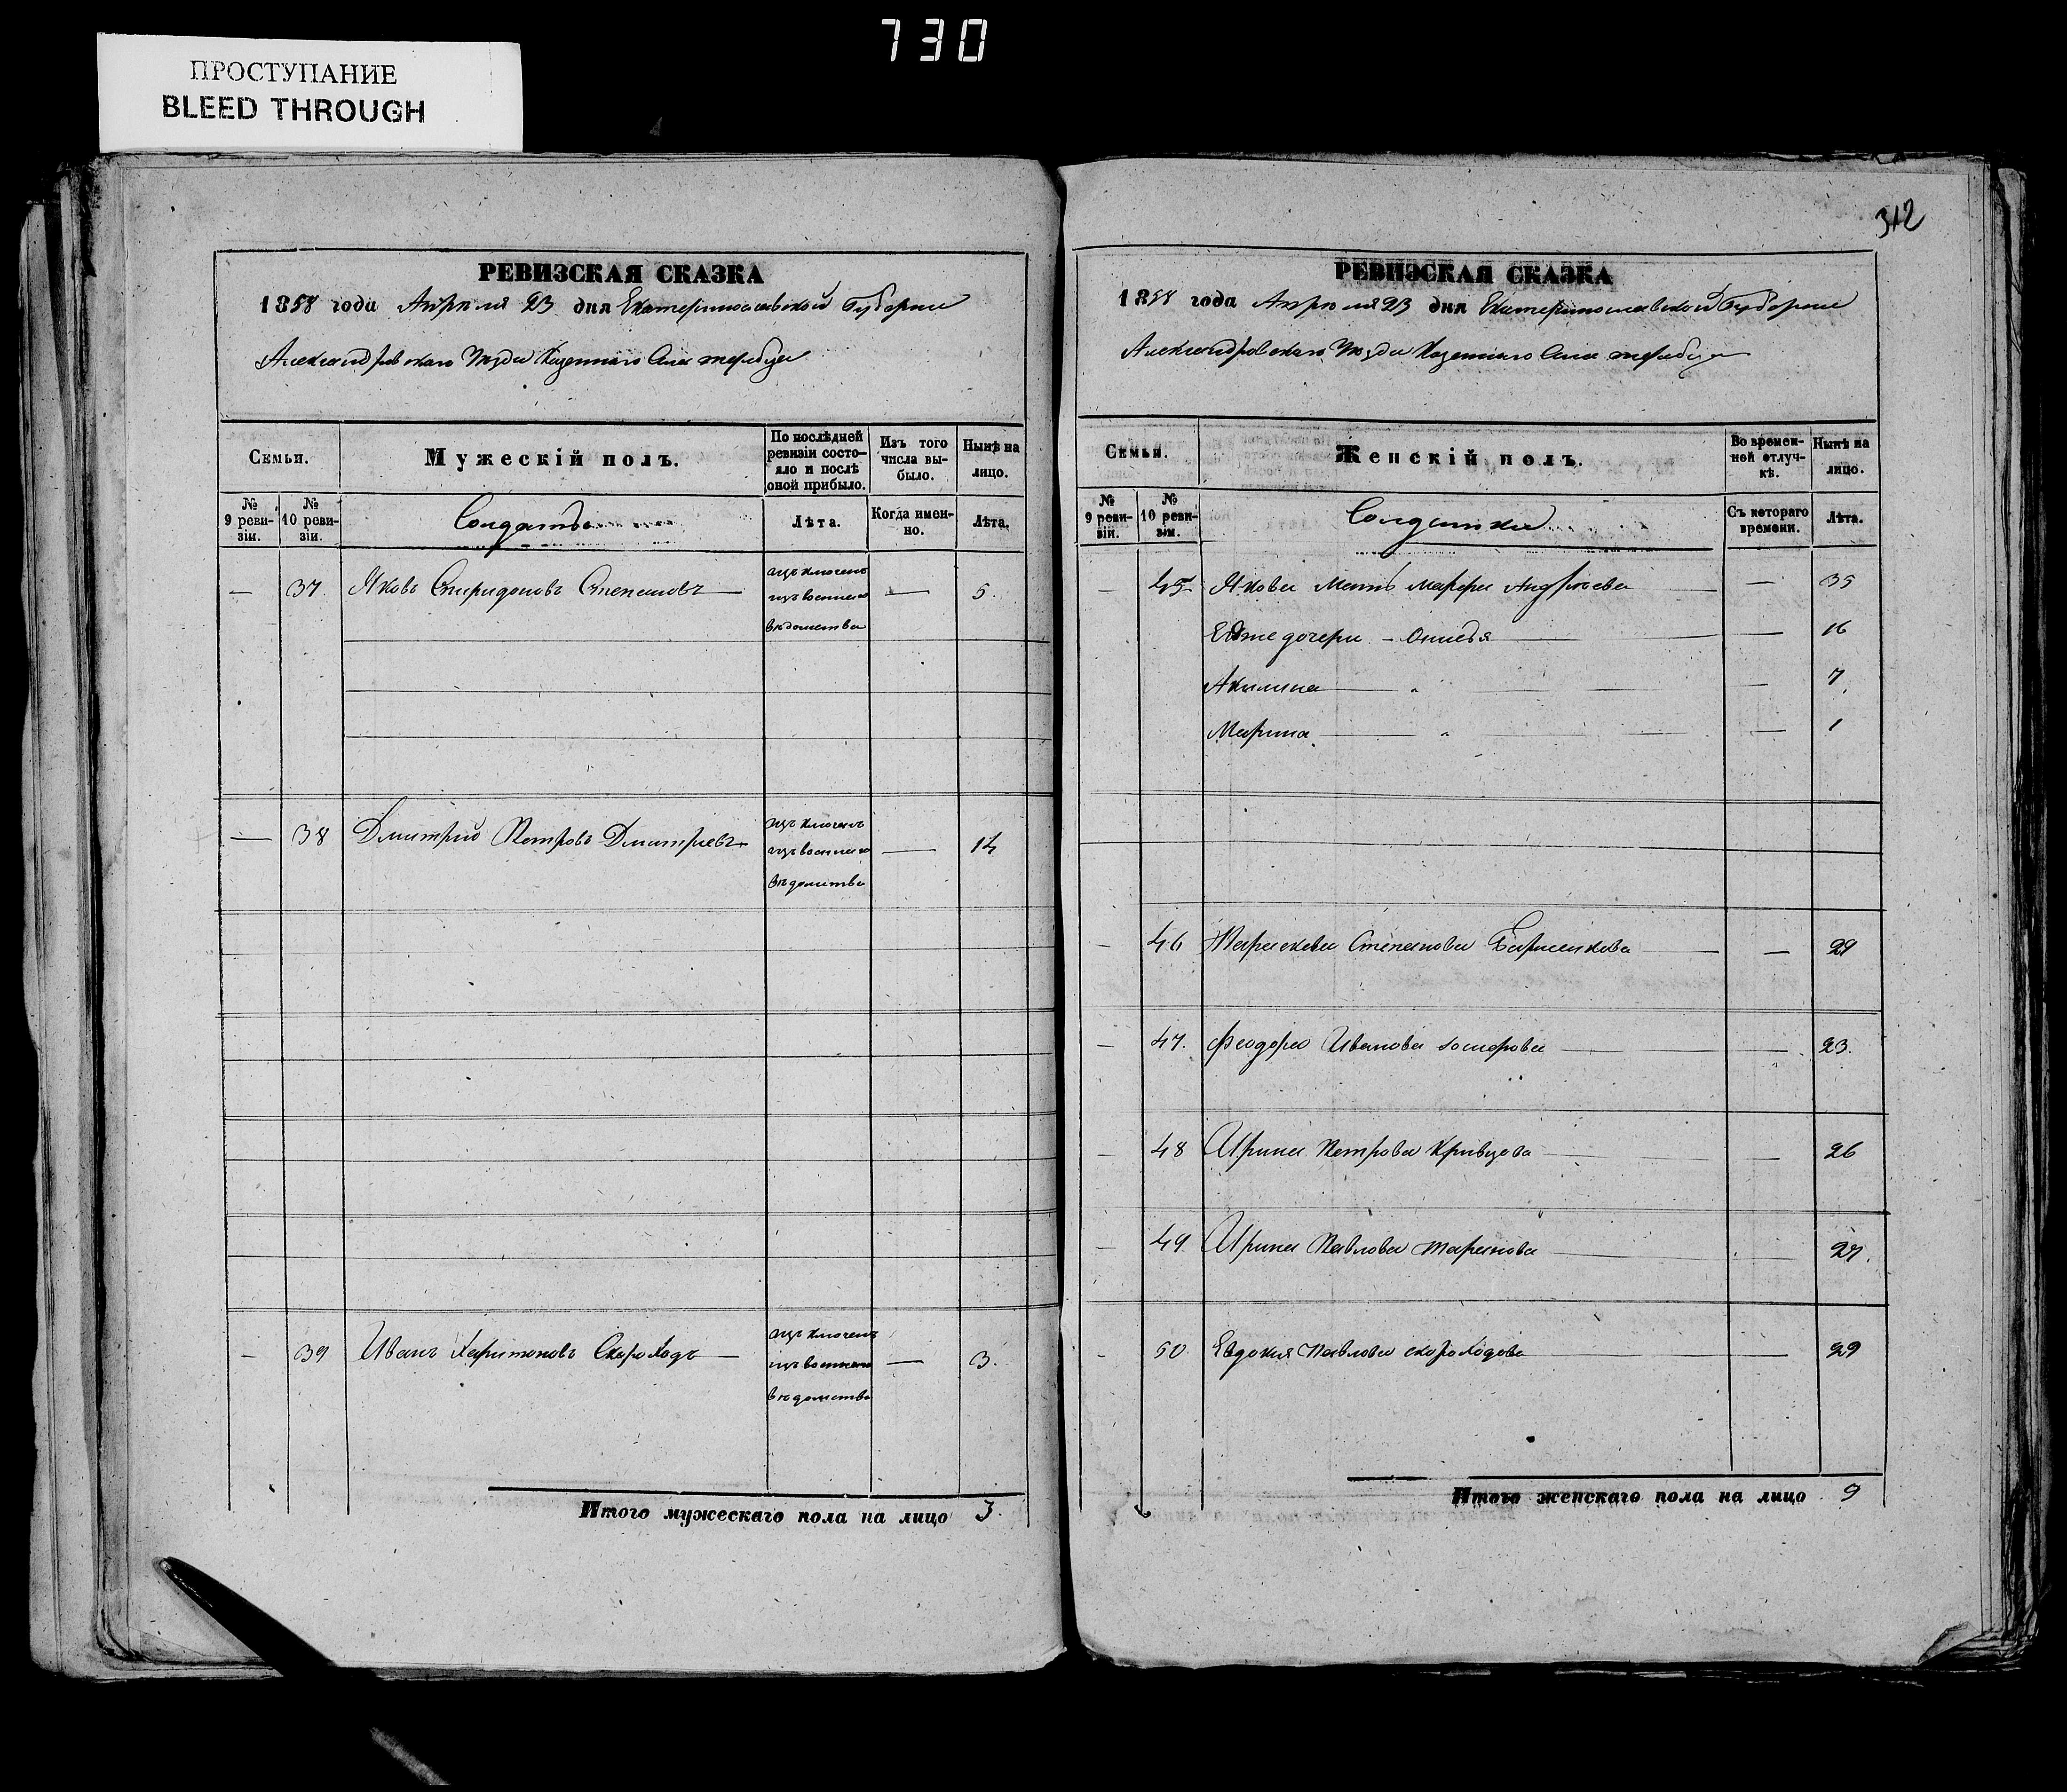 730
ПРОСТУПАНИЕ
BLEED THROUGH
РЕВИЗСКАЯ СКАЗКА
1858 года Апреля 23 дня Екатеринославской Губернии
Александровскаго Уезда Казеннаго Села
Семьи.
Мужескій полъ.
По послѣдней ревизіи состояло и послѣ оной прибыло.
Изъ того числа выбыло.
Нынѣ на лицо.
№ 9 ревизіи.
№ 10 ревизіи.
Солдаты
Лѣта.
Когда именно.
Лѣта.
— 37. Яковъ Спиридоновъ Степановъ — изъключенъ изъ военнаго ведомства — 5.
— 38 Дмитрій Петровъ Дмитріевъ изъключенъ изъ военнаго ведомства — 14
— 39 Иванъ Харитоновъ Скороходъ — изъключенъ изъ военнаго ведомства — 3.
Итого мужескаго пола на лицо 3.
312
РЕВИЗСКАЯ СКАЗКА
1858 года Апреля 23 дня Екатеринославской Губернии
Александровскаго Уезда Казеннаго Села
Семьи.
Женскій полъ.
Во временной отлучкѣ.
Нынѣ на лицо.
№ 9 ревизіи.
№ 10 ревизіи.
Солдатки
Съ котораго времени.
Лѣта.
— 45 Якова Мать Марфа Андреева — 35
дочери — 16
Акилина — " — 7
Марина — " — 1
— 46 Параскева Степанова — 29
— 47. Феодора Иванова — 23.
— 48 Ирина Петрова Кривцова — 26
— 49. Ирина Павлова Таранова — 27.
— 50. Евдокия Павлова Скороходова — 29
Итого женскаго пола на лицо 9